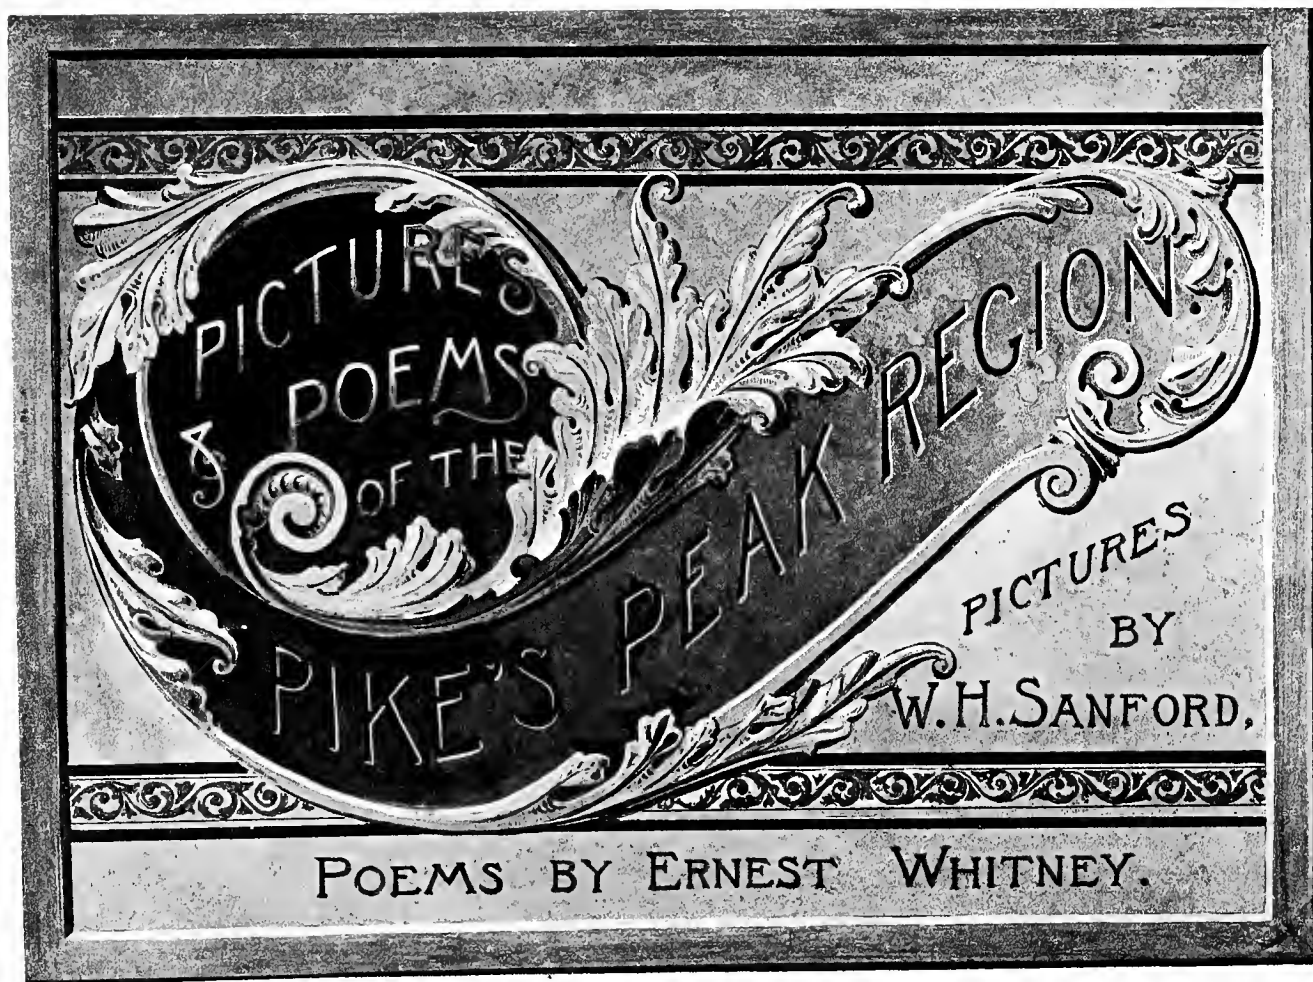 PICTURES
& POEMS
OF THE
PIKE'S PEAK REGION.
PICTURES
BY
W. H. SANFORD.
POEMS BY ERNEST WHITNEY.